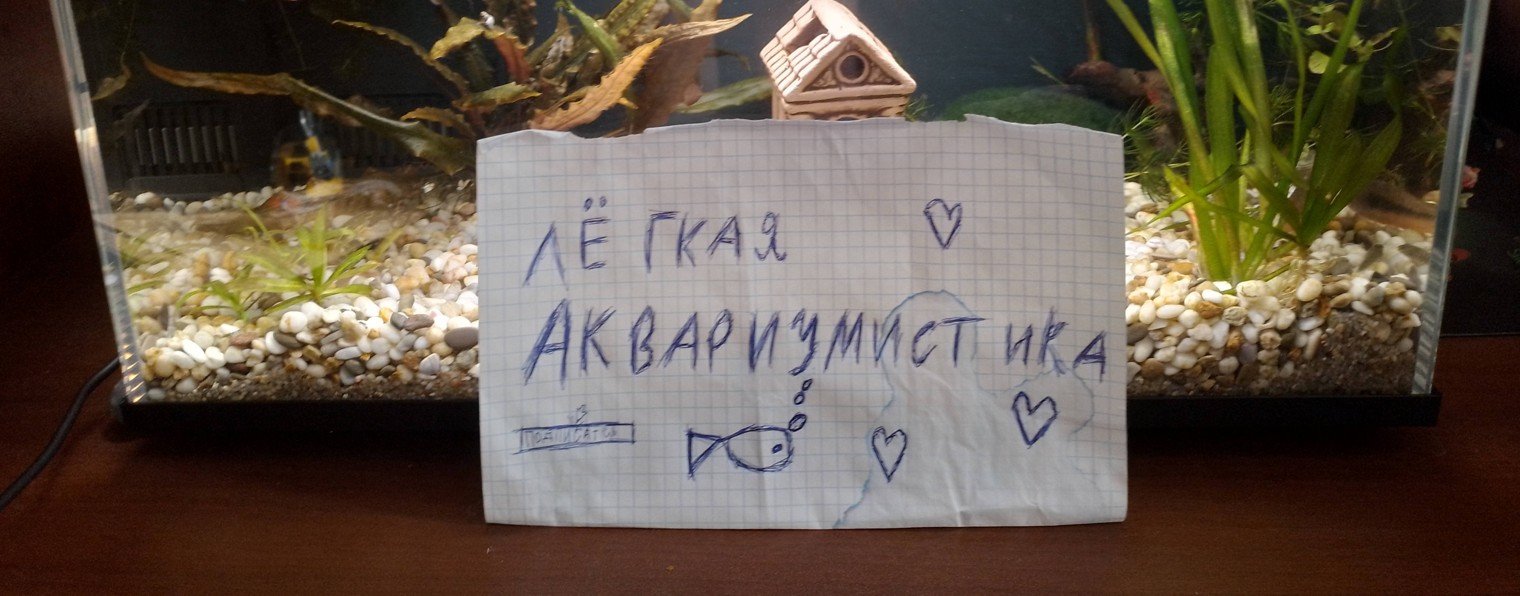 ЛЁГКАЯ
АКВАРИУМИСТИКА
ПОДПИСАТЬСЯ